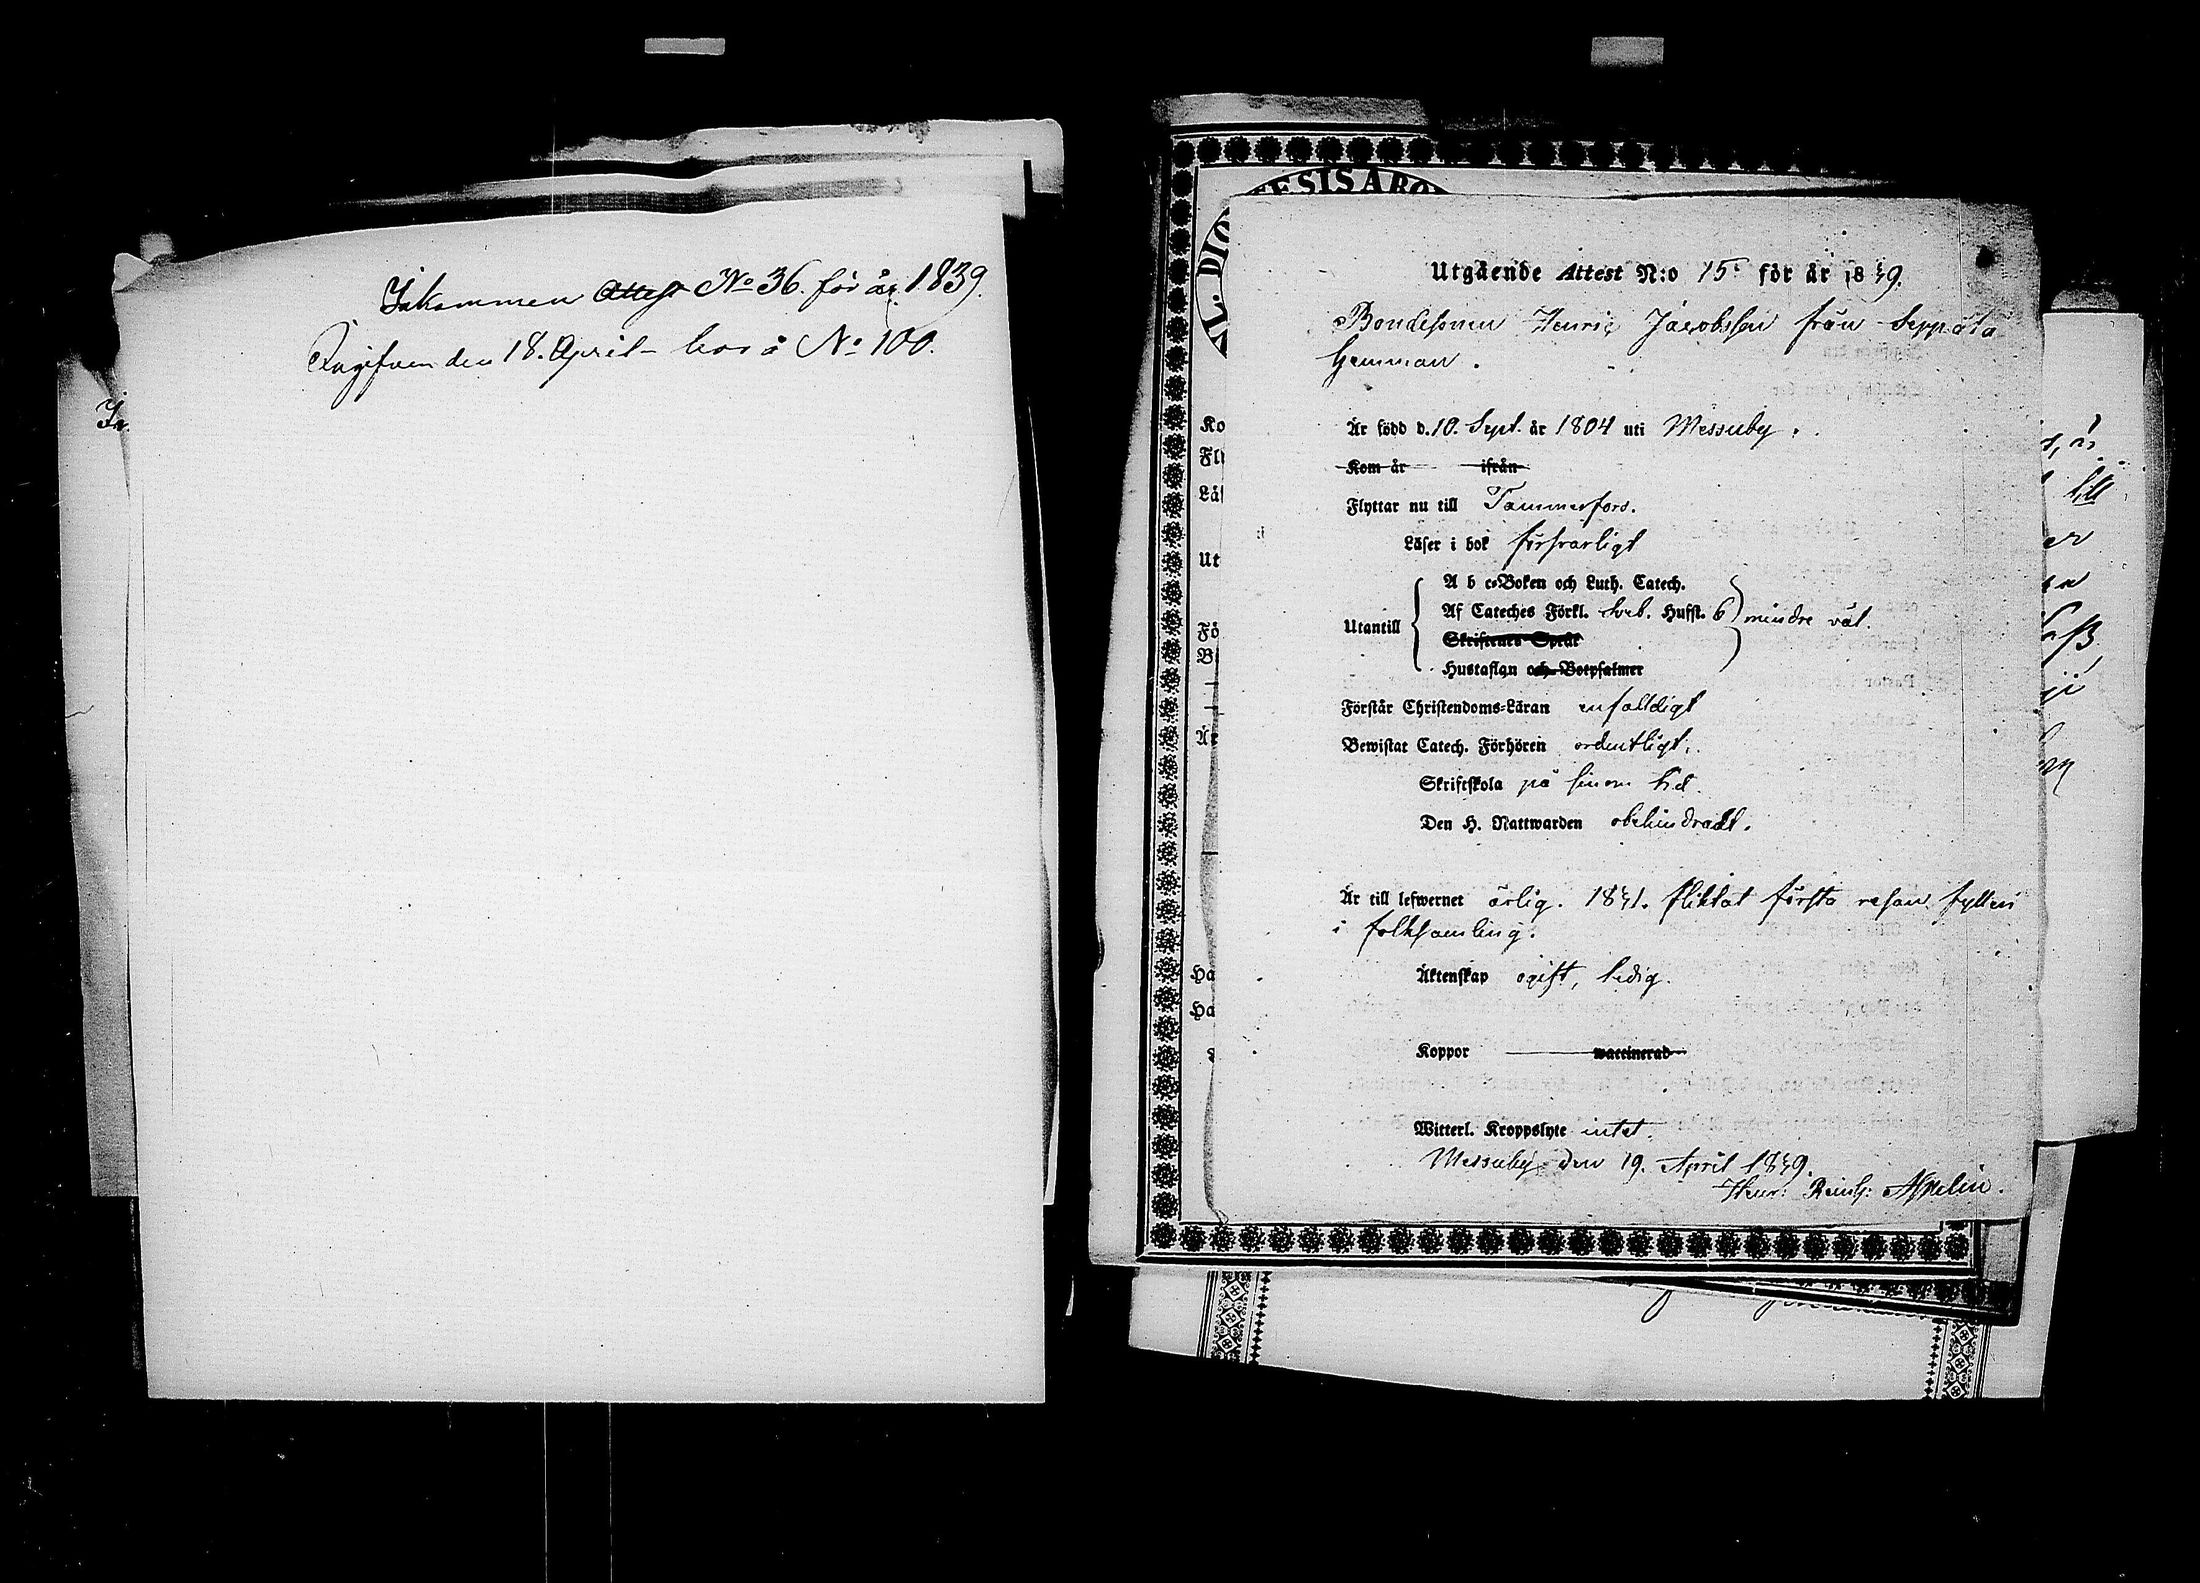 Inkommen Attest No 36. för år 1839.
Angifven den 18. April bor å No 100.
In
L. DIO ESIS ABO
Ko
Fly
Läs
Ut
Fö
B
Är
Ha
Ha
Utgående Attest N:o 15. för år 1839.
Bondesonen Henric Jacobsson från Seppälä
hemman.
Är född d. 10. Sept. år 1804 uti Messuby.
Kom år ifrån
Flyttar nu till Tammerfors.
Läser i bok försvarligt
Utantill
A b c-Boken och Luth. Catech.
Af Cateches Förkl. Sveb. Hufst. 6 mindre väl.
Skriftenes Språk
Hustaflan och Botpsalmer
Förstår Christendoms-Läran enfalldigt
Bewistat Catech. Förhören ordentligt.
Skriftskola på sinom tid.
Den H. Nattwarden obehindradt.
Är till lefwernet ärlig. 1831. pliktat första resan fylleri
i folksamling.
Äktenskap ogift, ledig.
Koppor waccinerad
Witterl. Kroppslyte intet.
Messuby den 19. April 1839.
Henr: Reinh: Aspelin.
till
er